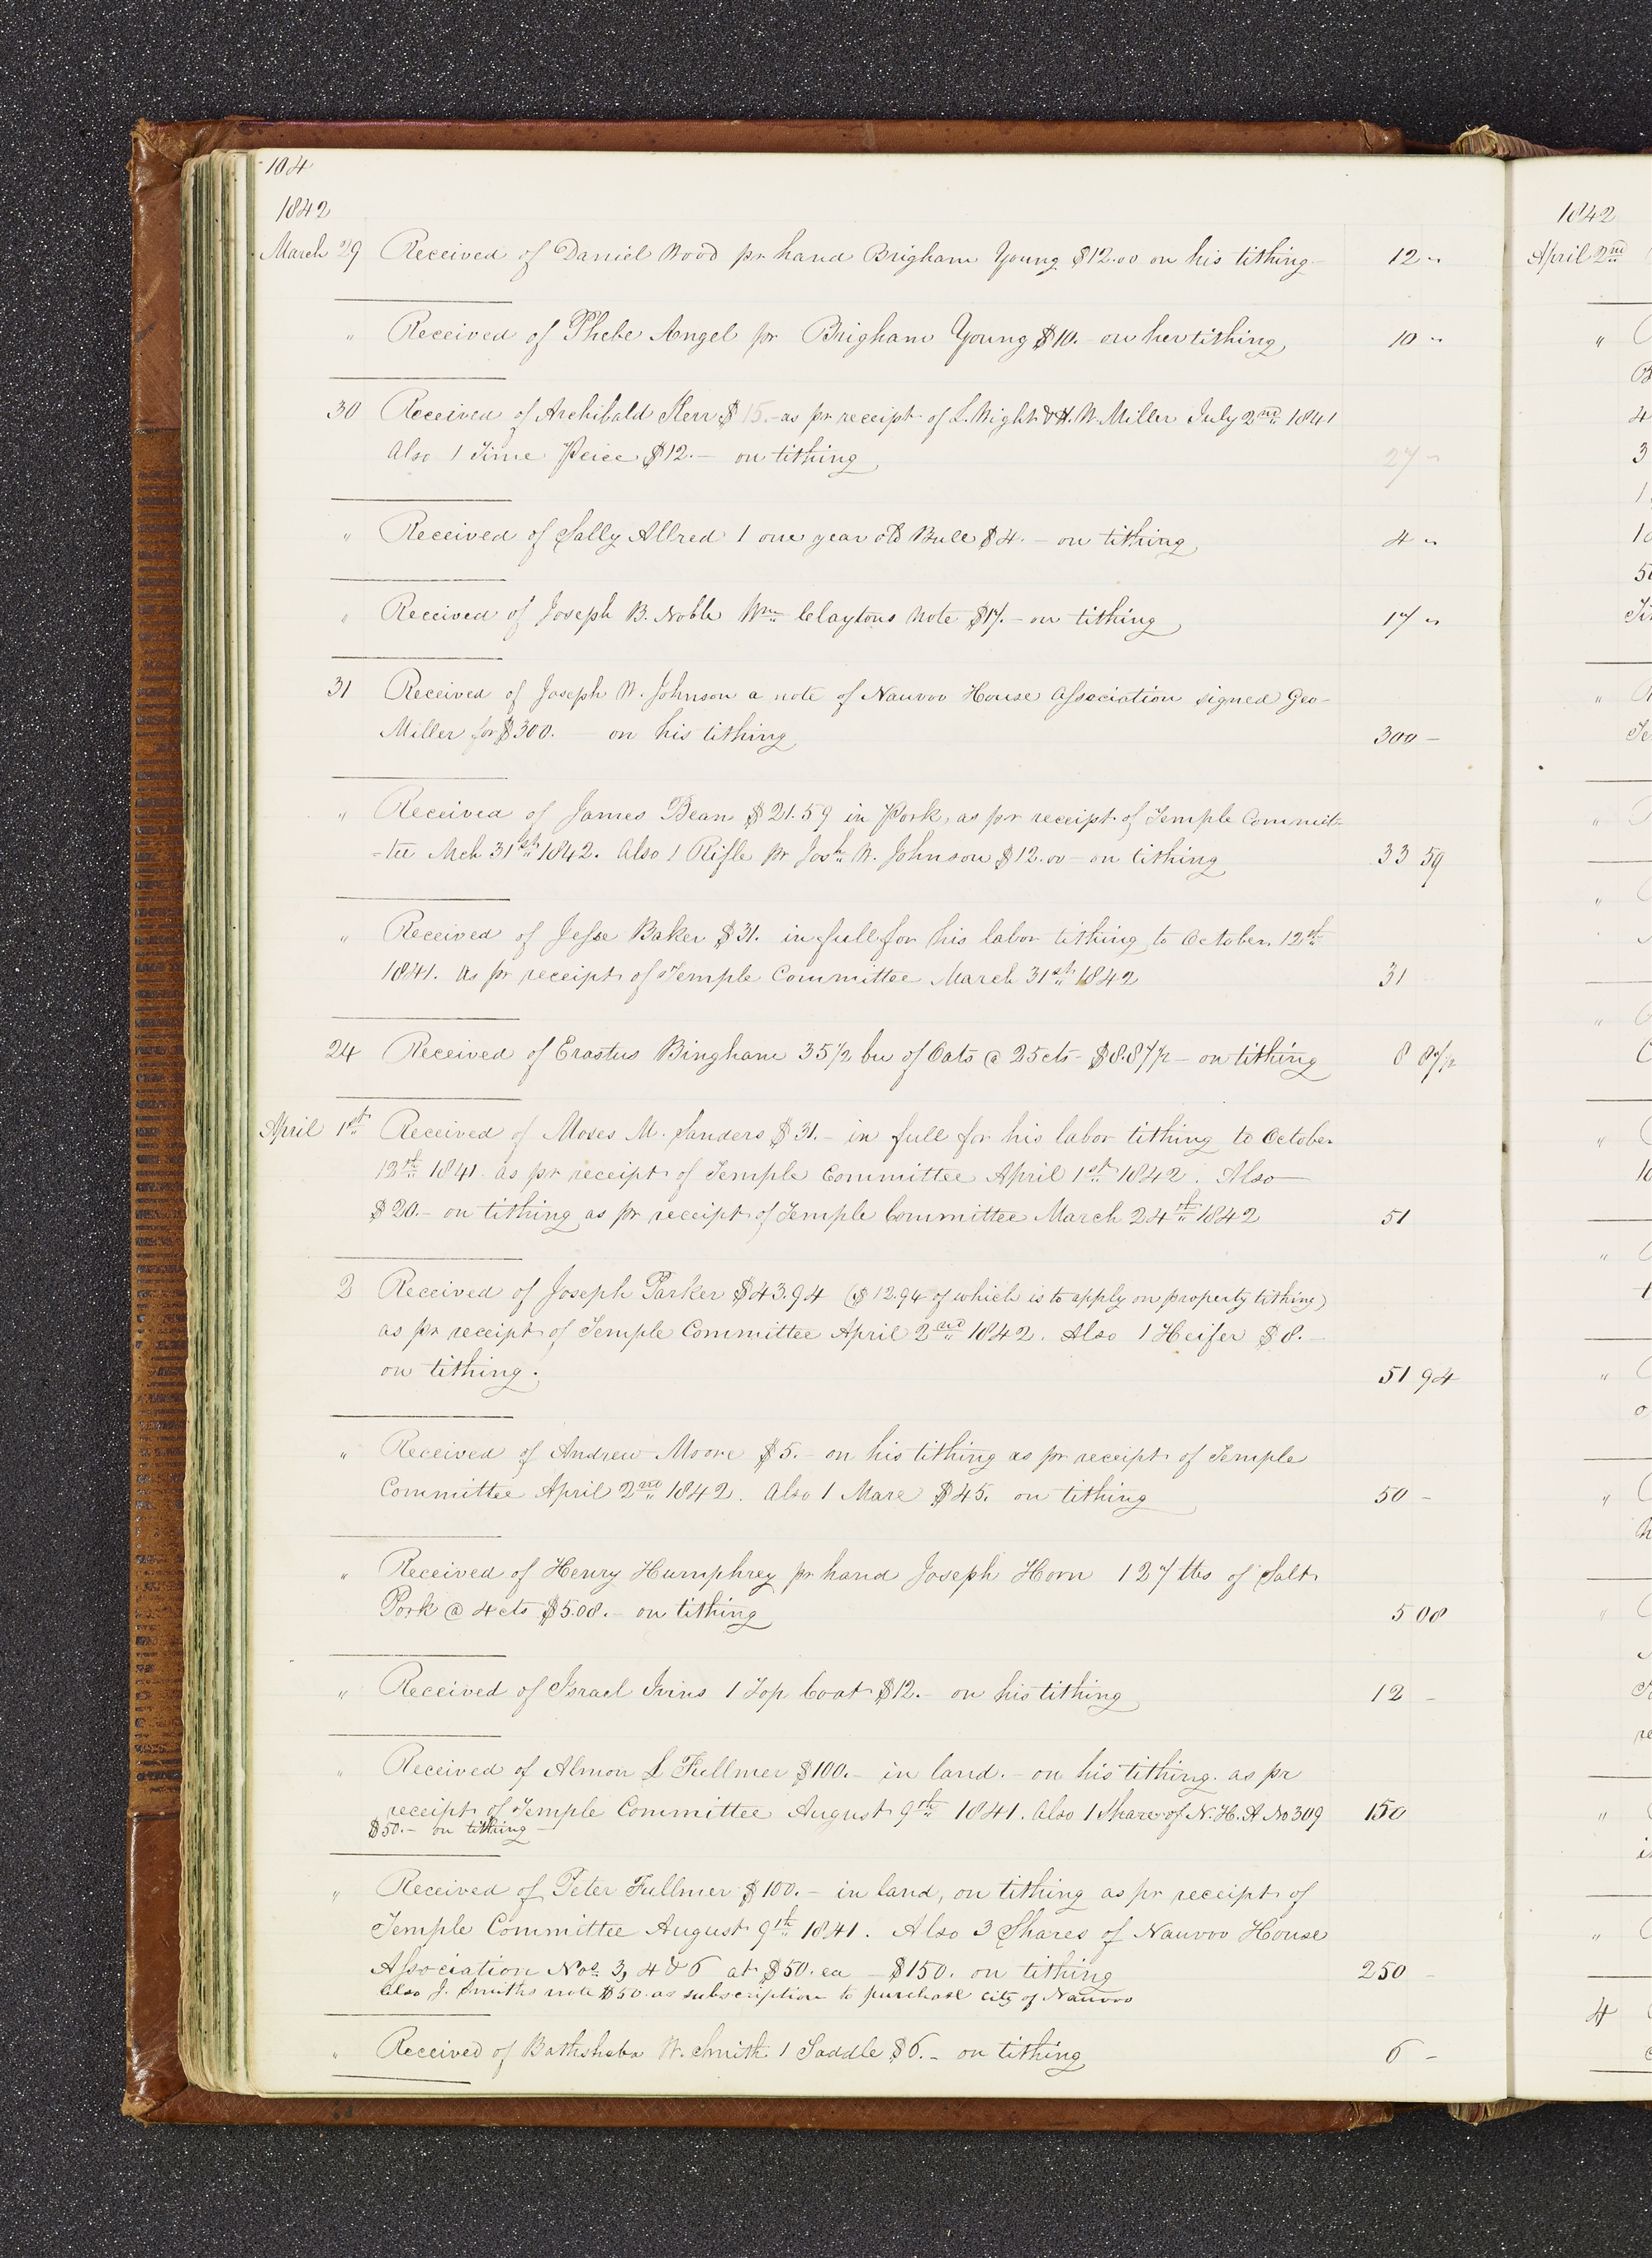 104
1842
March 29 Received of Daniel Wood pr hand Brigham Young $12.00 on his tithing 12 "
" Received of Phebe Angel pr Brigham Young $10.- on her tithing 10 "
30 Received of Archibald Kerr $15.- as pr receipt of L. Wight & H. W. Miller July 2nd 1841
Also 1 Time Peice $12.— on tithing 27 -
" Received of Sally Allred 1 one year old Bull $4.- on tithing 4 "
" Received of Joseph B. Noble Wm Claytons note $17.- on tithing 17 "
31 Received of Joseph W. Johnson a note of Nauvoo House Association signed Geo-
Miller for $300. — on his tithing 300 -
" Received of James Bean $21.59 in Pork, as pr receipt of Temple Commit-
-tee Mch 31st 1842. Also 1 Rifle pr Josh W. Johnson $12.00 - on tithing 33 59
" Received of Jesse Baker $31. in full for his labor tithing to October 12th
1841. as pr receipt of Temple Committee March 31st 1842 31
24 Received of Erastus Bingham 35 1/2 bu of Oats @ 25 cts - $8.87 1/2 - on tithing 8 87 1/2
April 1st Received of Moses M. Sanders $31.- in full for his labor tithing to October
12th 1841 as pr receipt of Temple Committee April 1st 1842. Also
$20.- on tithing as pr receipt of Temple Committee March 24th 1842 51
2 Received of Joseph Parker $43.94 ($12.94 of which is to apply on property tithing)
as pr receipt of Temple Committee April 2nd 1842. Also 1 Heifer $8.-
on tithing. 51 94
" Received of Andrew Moore $5.- on his tithing as pr receipt of Temple
Committee April 2nd 1842. Also 1 Mare $45. on tithing 50 -
" Received of Henry Humphrey pr hand Joseph Horn 127 lbs of Salt
Pork @ 4 cts $5.08.- on tithing 5 08
" Received of Israel Ivins 1 Top Coat $12.- on his tithing 12 -
" Received of Almon L Fullmer $100.- in land.- on his tithing. as pr
receipt of Temple Committee August 9th 1841. Also 1 Share of N.H.A No 309 150
$50.- on tithing -
" Received of Peter Fullmer $100.- in land, on tithing as pr receipt of
Temple Committee August 9th 1841. Also 3 Shares of Nauvoo House
Association Nos. 3, 4 & 6 at $50. ea - $150. on tithing 250 -
also J. Smiths note $50 as subscription to purchase city of Nauvoo
" Received of Bathsheba W. Smith 1 Saddle $6.- on tithing 6 -
1842
April 2nd
4